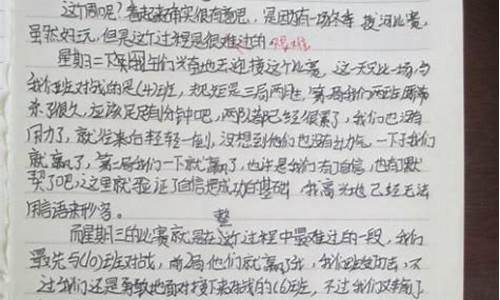 这个周吧？看起来确实很有意思，是因为有一场冬季拔河比赛，
虽然好玩，但是这个过程是很难过的 艰难
星期二下午同学们兴奋地去迎接这个比赛，这一天只比一场，与
我们班对战的是(4)班，规矩是三局两胜，第一局我们两班
来了很久，应该足足有1分钟吧，两队都已经很累了，我们也没有
用力了，就坐来自轻轻一 ，没想到他们也没有出力气，一下子我们
就赢了，第二局我们一下就赢了，也许是我们有了自信，也有了默
契了吧，这里就验证了自信是成功的基础，我高兴地已经无法
用言语来形容。
整
而星期三的比赛就是在这个过程中最难过的一段，我们
最先与(10)班对战，前2局他们就赢了我，我们 ，不
过我们还是勇敢地面对接下来对战的(6)班，不过我们又输了